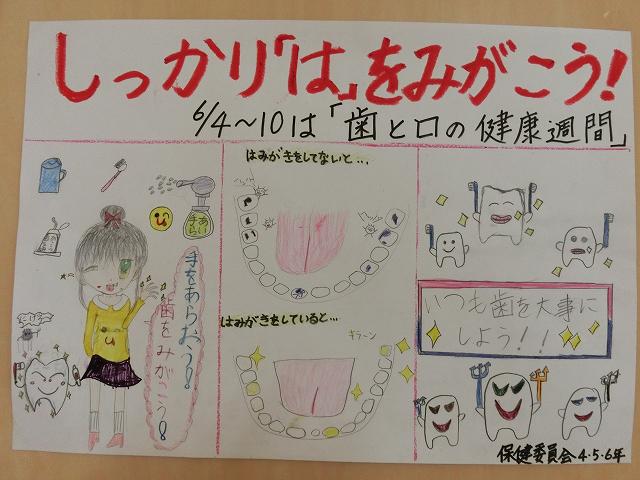 しっかり「は」をみがこう!
6/4~10は「歯と口の健康週間」
手をあらおう!
歯をみがこう!
はみがきをしてないと…
はみがきをしていると…
キラーン
いつも歯を大事に
しよう!!
保健委員会4・5・6年